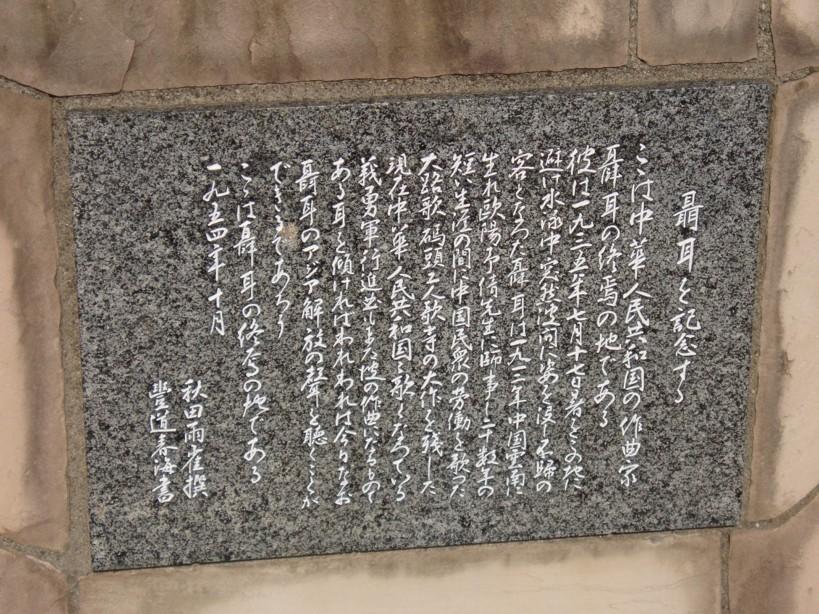 聶耳を記念する
ここは中華人民共和国の作曲家
聶耳の終焉の地である
彼は一九三五年七月十七日暑をこの地に
避け水泳中突然波間に姿を没し不帰の
客となった聶耳は一九一二年中国雲南に
生れ欧陽予倩先生に師事し二十数年の
短い生涯の間に中国民衆の労働を歌った
大路歌碼頭工人歌等の大作を残した
現在中華人民共和国々歌となっている
義勇軍行進曲も また彼の作曲になるもので
ある耳を傾ければわれわれは今もなお
聶耳のアジア解放の聲を聴くことが
できるであろう
ここは聶耳の終焉の地である
一九五四年十月
秋田雨雀撰
豐道春海書